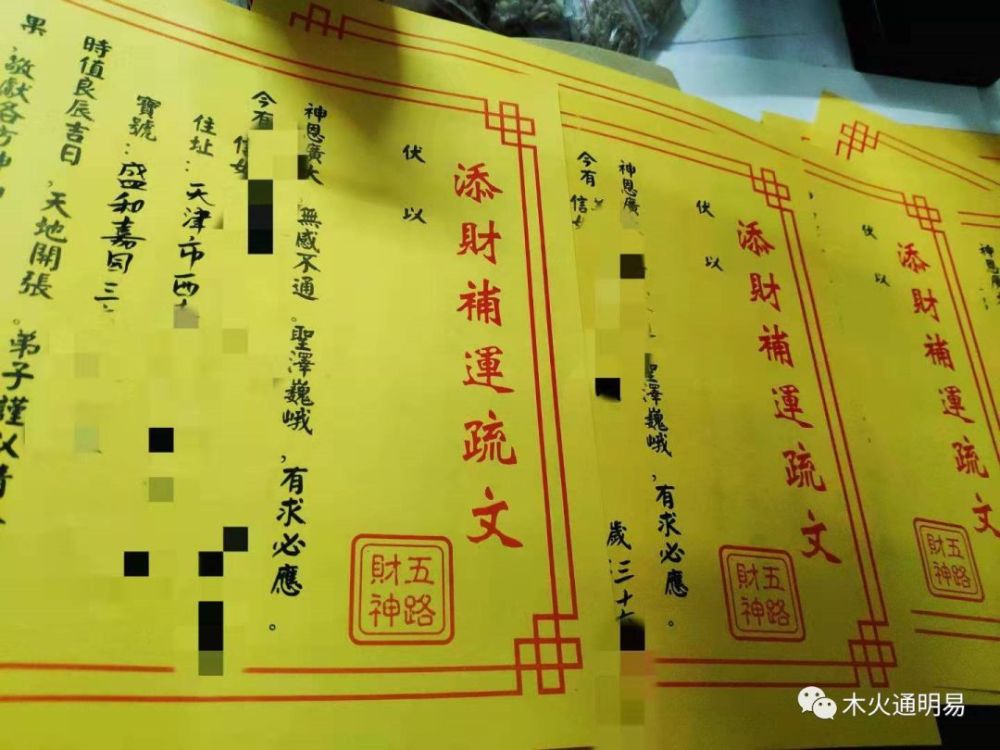 添財補運疏文
五路
財神
伏以
神恩廣大，無感不通。聖澤巍峨，有求必應。
今有信女
住址：天津市西
寶號：盛和嘉 三
時值良辰吉日，天地開張。弟子謹以
果，敬獻各方
添財補運疏文
五路
財神
伏以
神恩廣 聖澤巍峨，有求必應。
今有信 歲三十
添財補運疏文
五路
財神
伏以
神恩廣
木火通明易